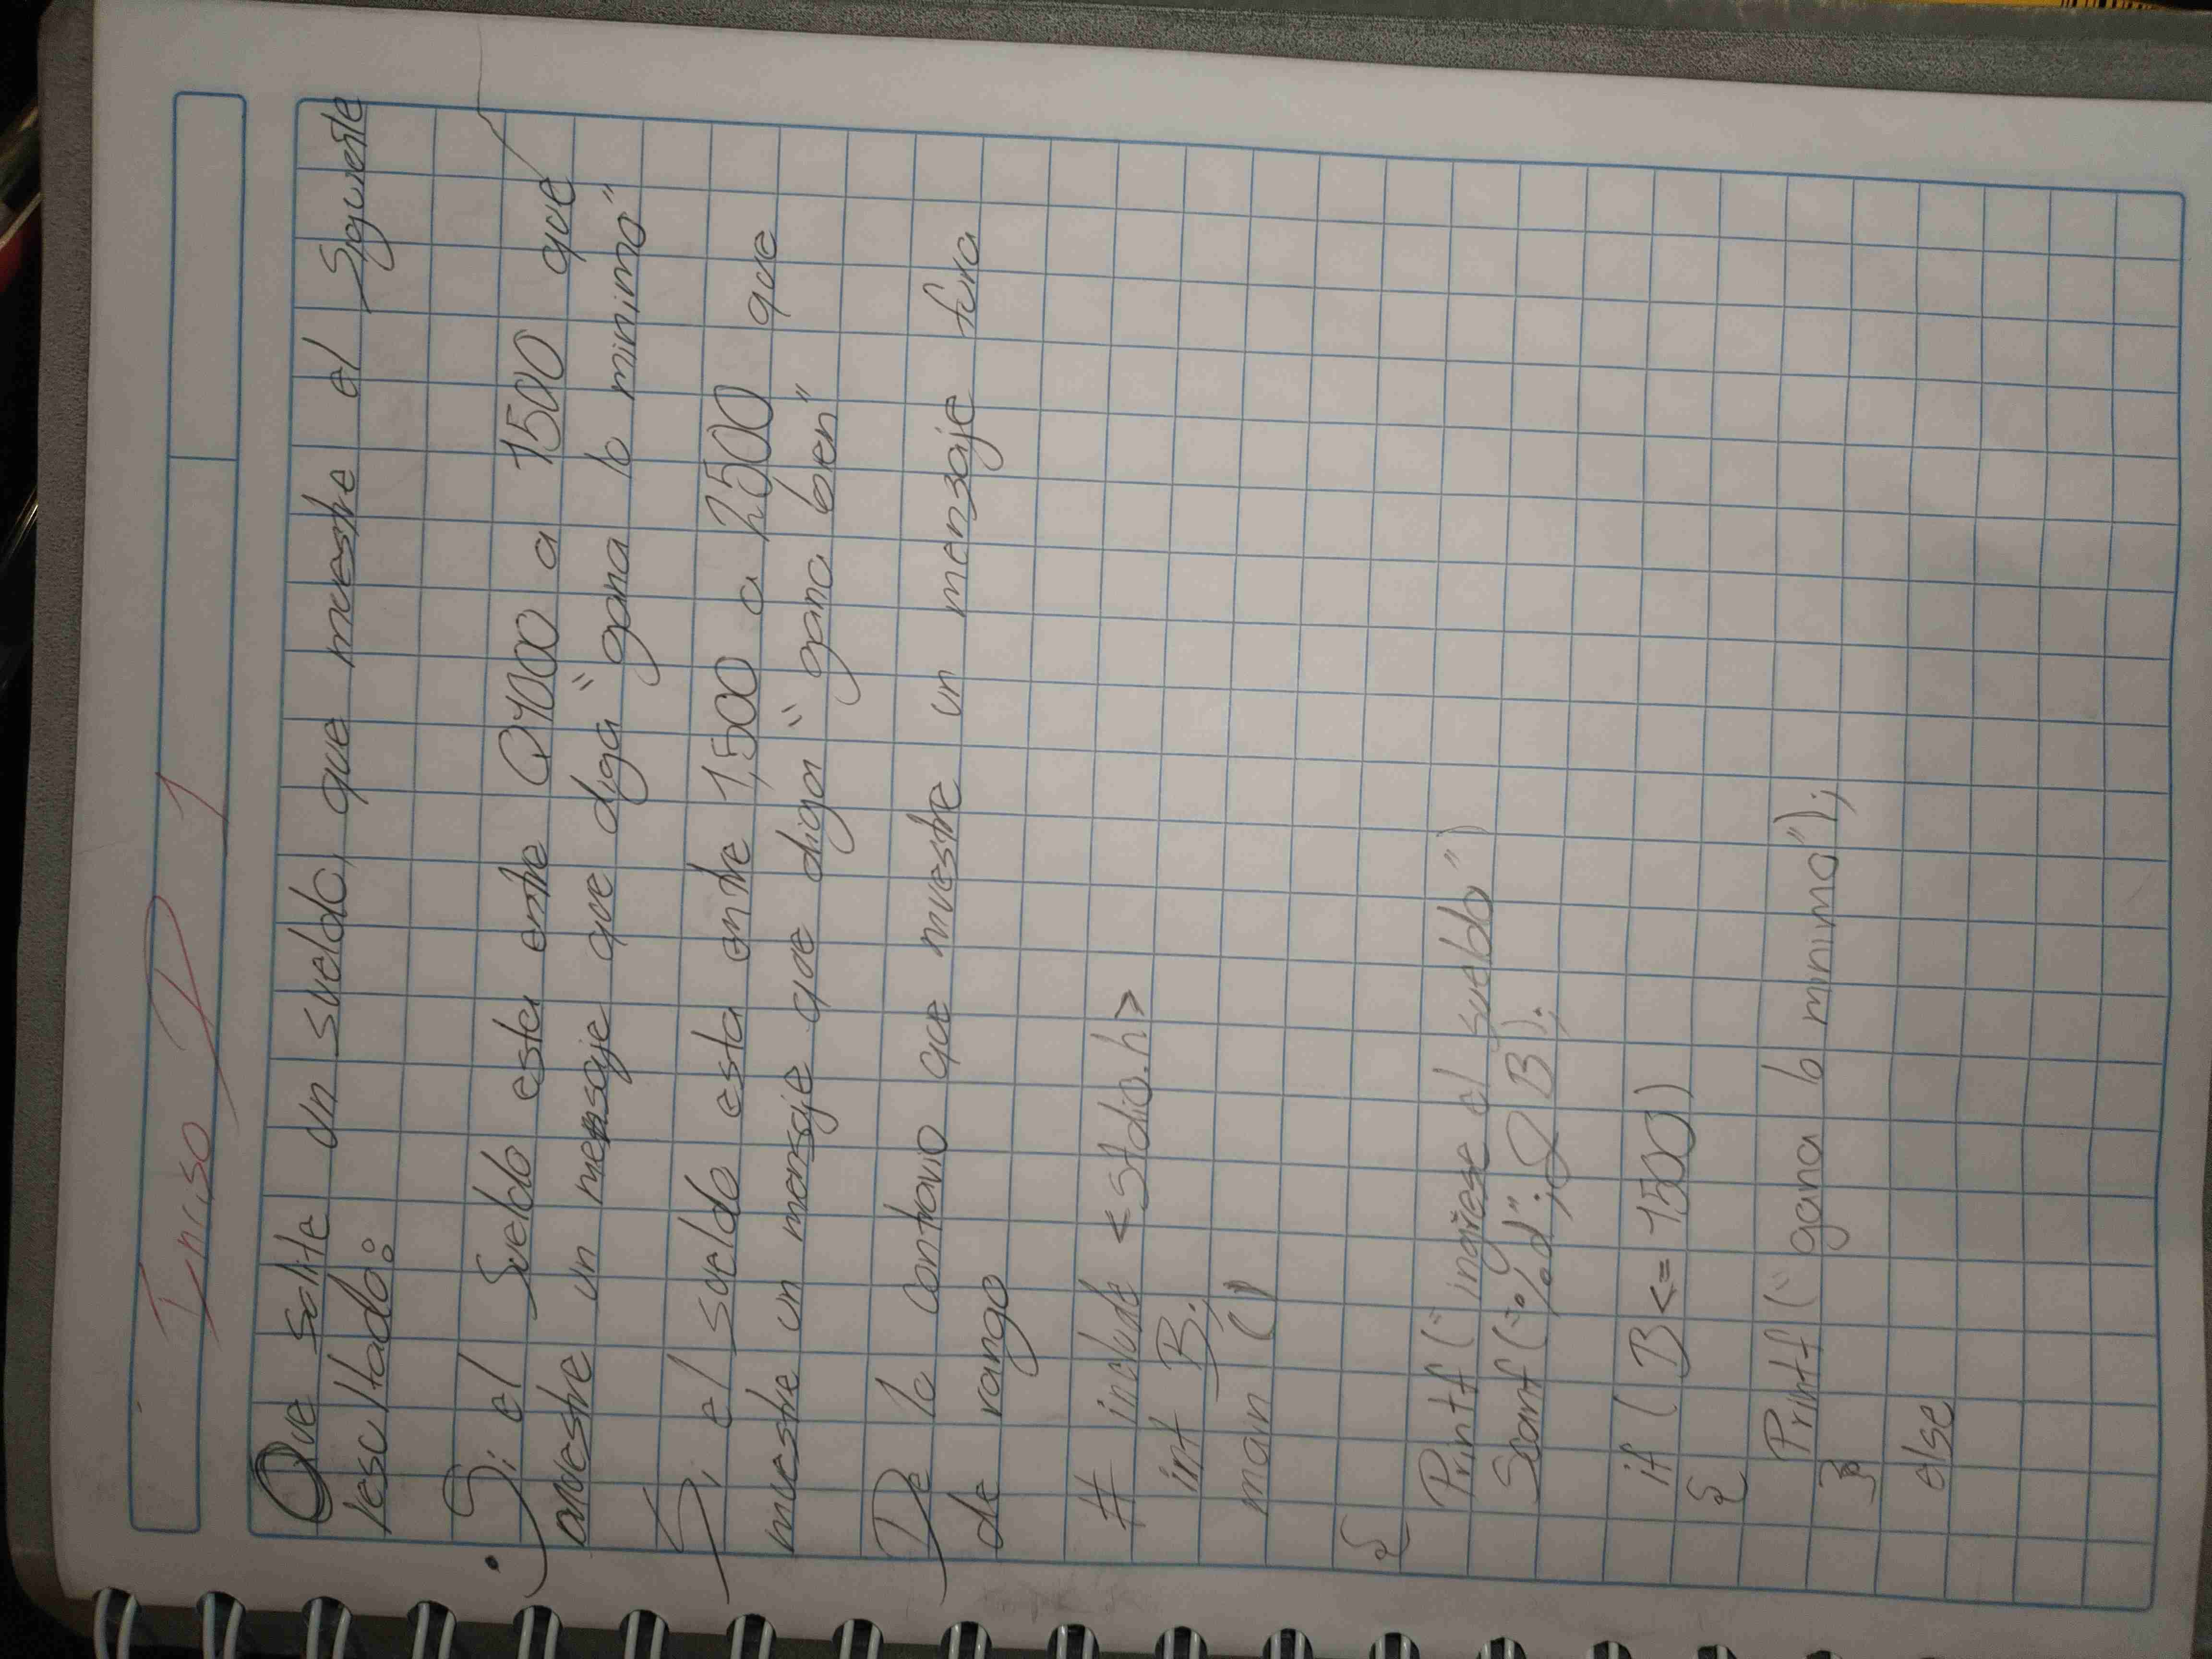 Inciso D 1
Que solite un sueldo, que muestre el siguiente
resultado:
• Si el sueldo esta entre Q1000 a 1500 que
muestre un mensaje que diga "gana lo minimo"
Si el sueldo esta entre 1,500 a 2500 que
muestre un mensaje que diga "gana bien"
De lo contrario que muestre un menzaje fera
de rango
# include <stdio.h>
int B;
main ()
{
Printf ("ingrese el sueldo")
Scanf ("%d";& B);
if (B <= 1500)
{
Printf ("gana lo minimo");
}
else